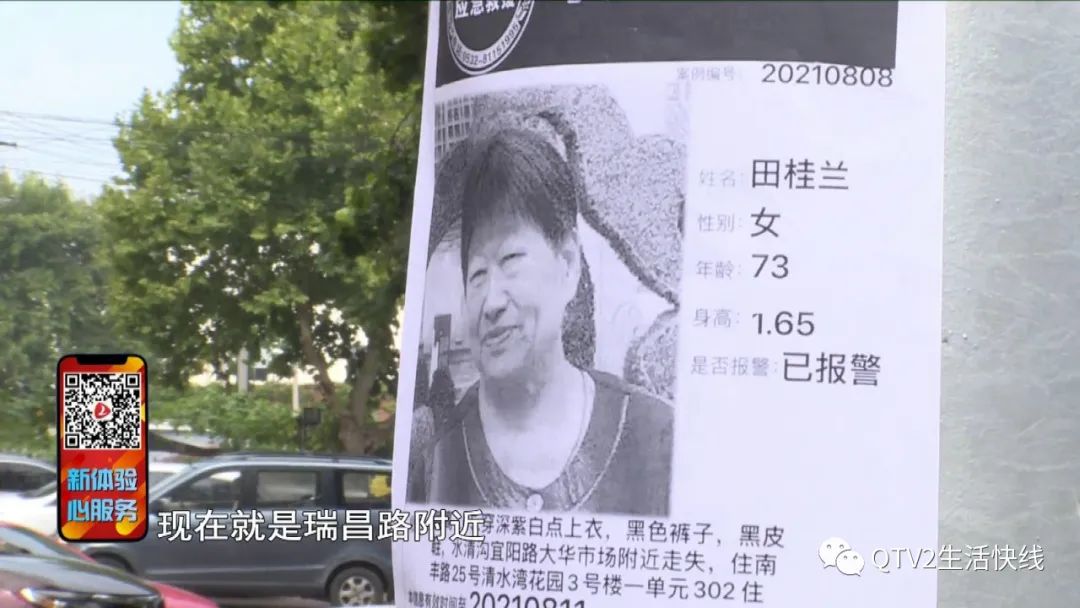 应急救援
0532-81151995
案例编号: 20210808
姓名: 田桂兰
性别: 女
年龄: 73
身高: 1.65
是否报警: 已报警
穿深紫白点上衣，黑色裤子，黑皮
鞋，水清沟宜阳路大华市场附近走失，住南
丰路25号清水湾花园3号楼一单元302住
本信息有效时间至20210811
新体验
心服务
现在就是瑞昌路附近
QTV2生活快线